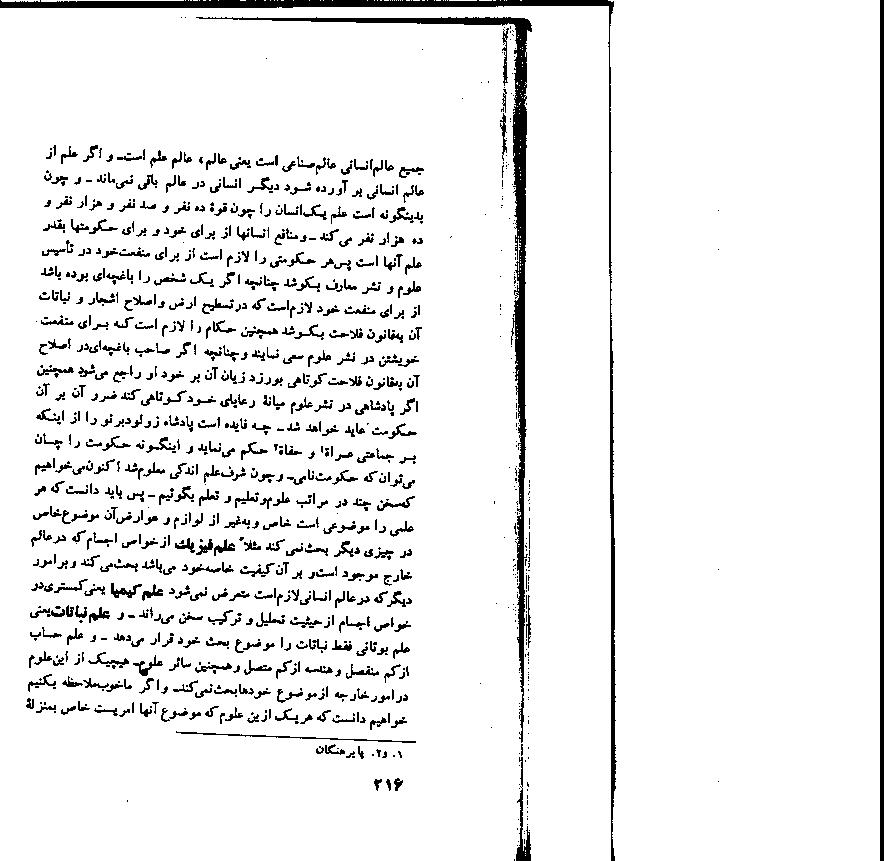 جمیع عالم‌انسانی عالم‌صناعی است یعنی عالم، عالم علم است ـ و اگر علم از
عالم انسانی بر آورده شود دیگر انسانی در عالم باقی نمی‌ماند ـ و چون
بدینگونه است علم یک‌انسان را چون قوهٔ ده نفر و صد نفر و هزار نفر و
ده هزار نفر می‌کند ـ ومنافع انسانها از برای خود و برای حکومتها بقدر
علم آنها است پس‌هر حکومتی را لازم است از برای منفعت‌خود در تأسیس
علوم و نشر معارف بکوشد چنانچه اگر یک شخص را باغچه‌ای بوده باشد
از برای منفعت خود لازم‌است که درتسطیح ارض واصلاح اشجار و نباتات
آن به‌قانون فلاحت بکوشد همچنین حکام را لازم است‌که برای منفعت
خویشتن در نشر علوم سعی نمایند وچنانچه اگر صاحب باغچه‌ای‌در اصلاح
آن به‌قانون فلاحت‌کوتاهی بورزد زیان آن بر خود او راجع می‌شود همچنین
اگر پادشاهی در نشرعلوم میانهٔ رعایای خودکوتاهی‌کند ضرر آن بر آن
حکومت عاید خواهد شد ـ چه فایده است پادشاه زولودبرنو را از اینکه
بر جماعتی عراة۱ و حفاة۲ حکم می‌نماید و اینگونه حکومت را چسان
می‌توان که حکومت‌نامی ـ وچون شرف‌علم اندکی معلوم‌شد اکنون‌می‌خواهیم
که‌سخن چند در مراتب علوم‌وتعلیم و تعلم بگوئیم ـ پس باید دانست‌که هر
علمی را موضوعی است خاص وبه‌غیر از لوازم و عوارض‌آن موضوع‌خاص
در چیزی دیگر بحث‌نمی‌کند مثلاً علم‌فیزیک ازخواص اجسام‌که درعالم
خارج موجود است‌و بر آن کیفیت خاصه‌خود می‌باشد بحث‌می‌کند وبرامور
دیگرکه درعالم انسانی‌لازم‌است متعرض نمی‌شود علم‌کیمیا یعنی‌کمستری‌در
خواص اجسام ازحیثیت تحلیل و ترکیب سخن می‌راند ـ و علم‌نباتات‌یعنی
علم بوتانی فقط نباتات را موضوع بحث خود قرار می‌دهد ـ و علم حساب
ازکم منفصل وهندسه ازکم متصل وهمچنین سائر علوم ـ هیچیک از این‌علوم
درامورخارجه ازموضوع خودهابحث‌نمی‌کند ـ واگر ماخوب‌ملاحظه بکنیم
خواهیم دانست‌که هریک ازین علوم‌که موضوع آنها امریست خاص بمنزلهٔ
۱. و۲. پابرهنگان
۲۱۶